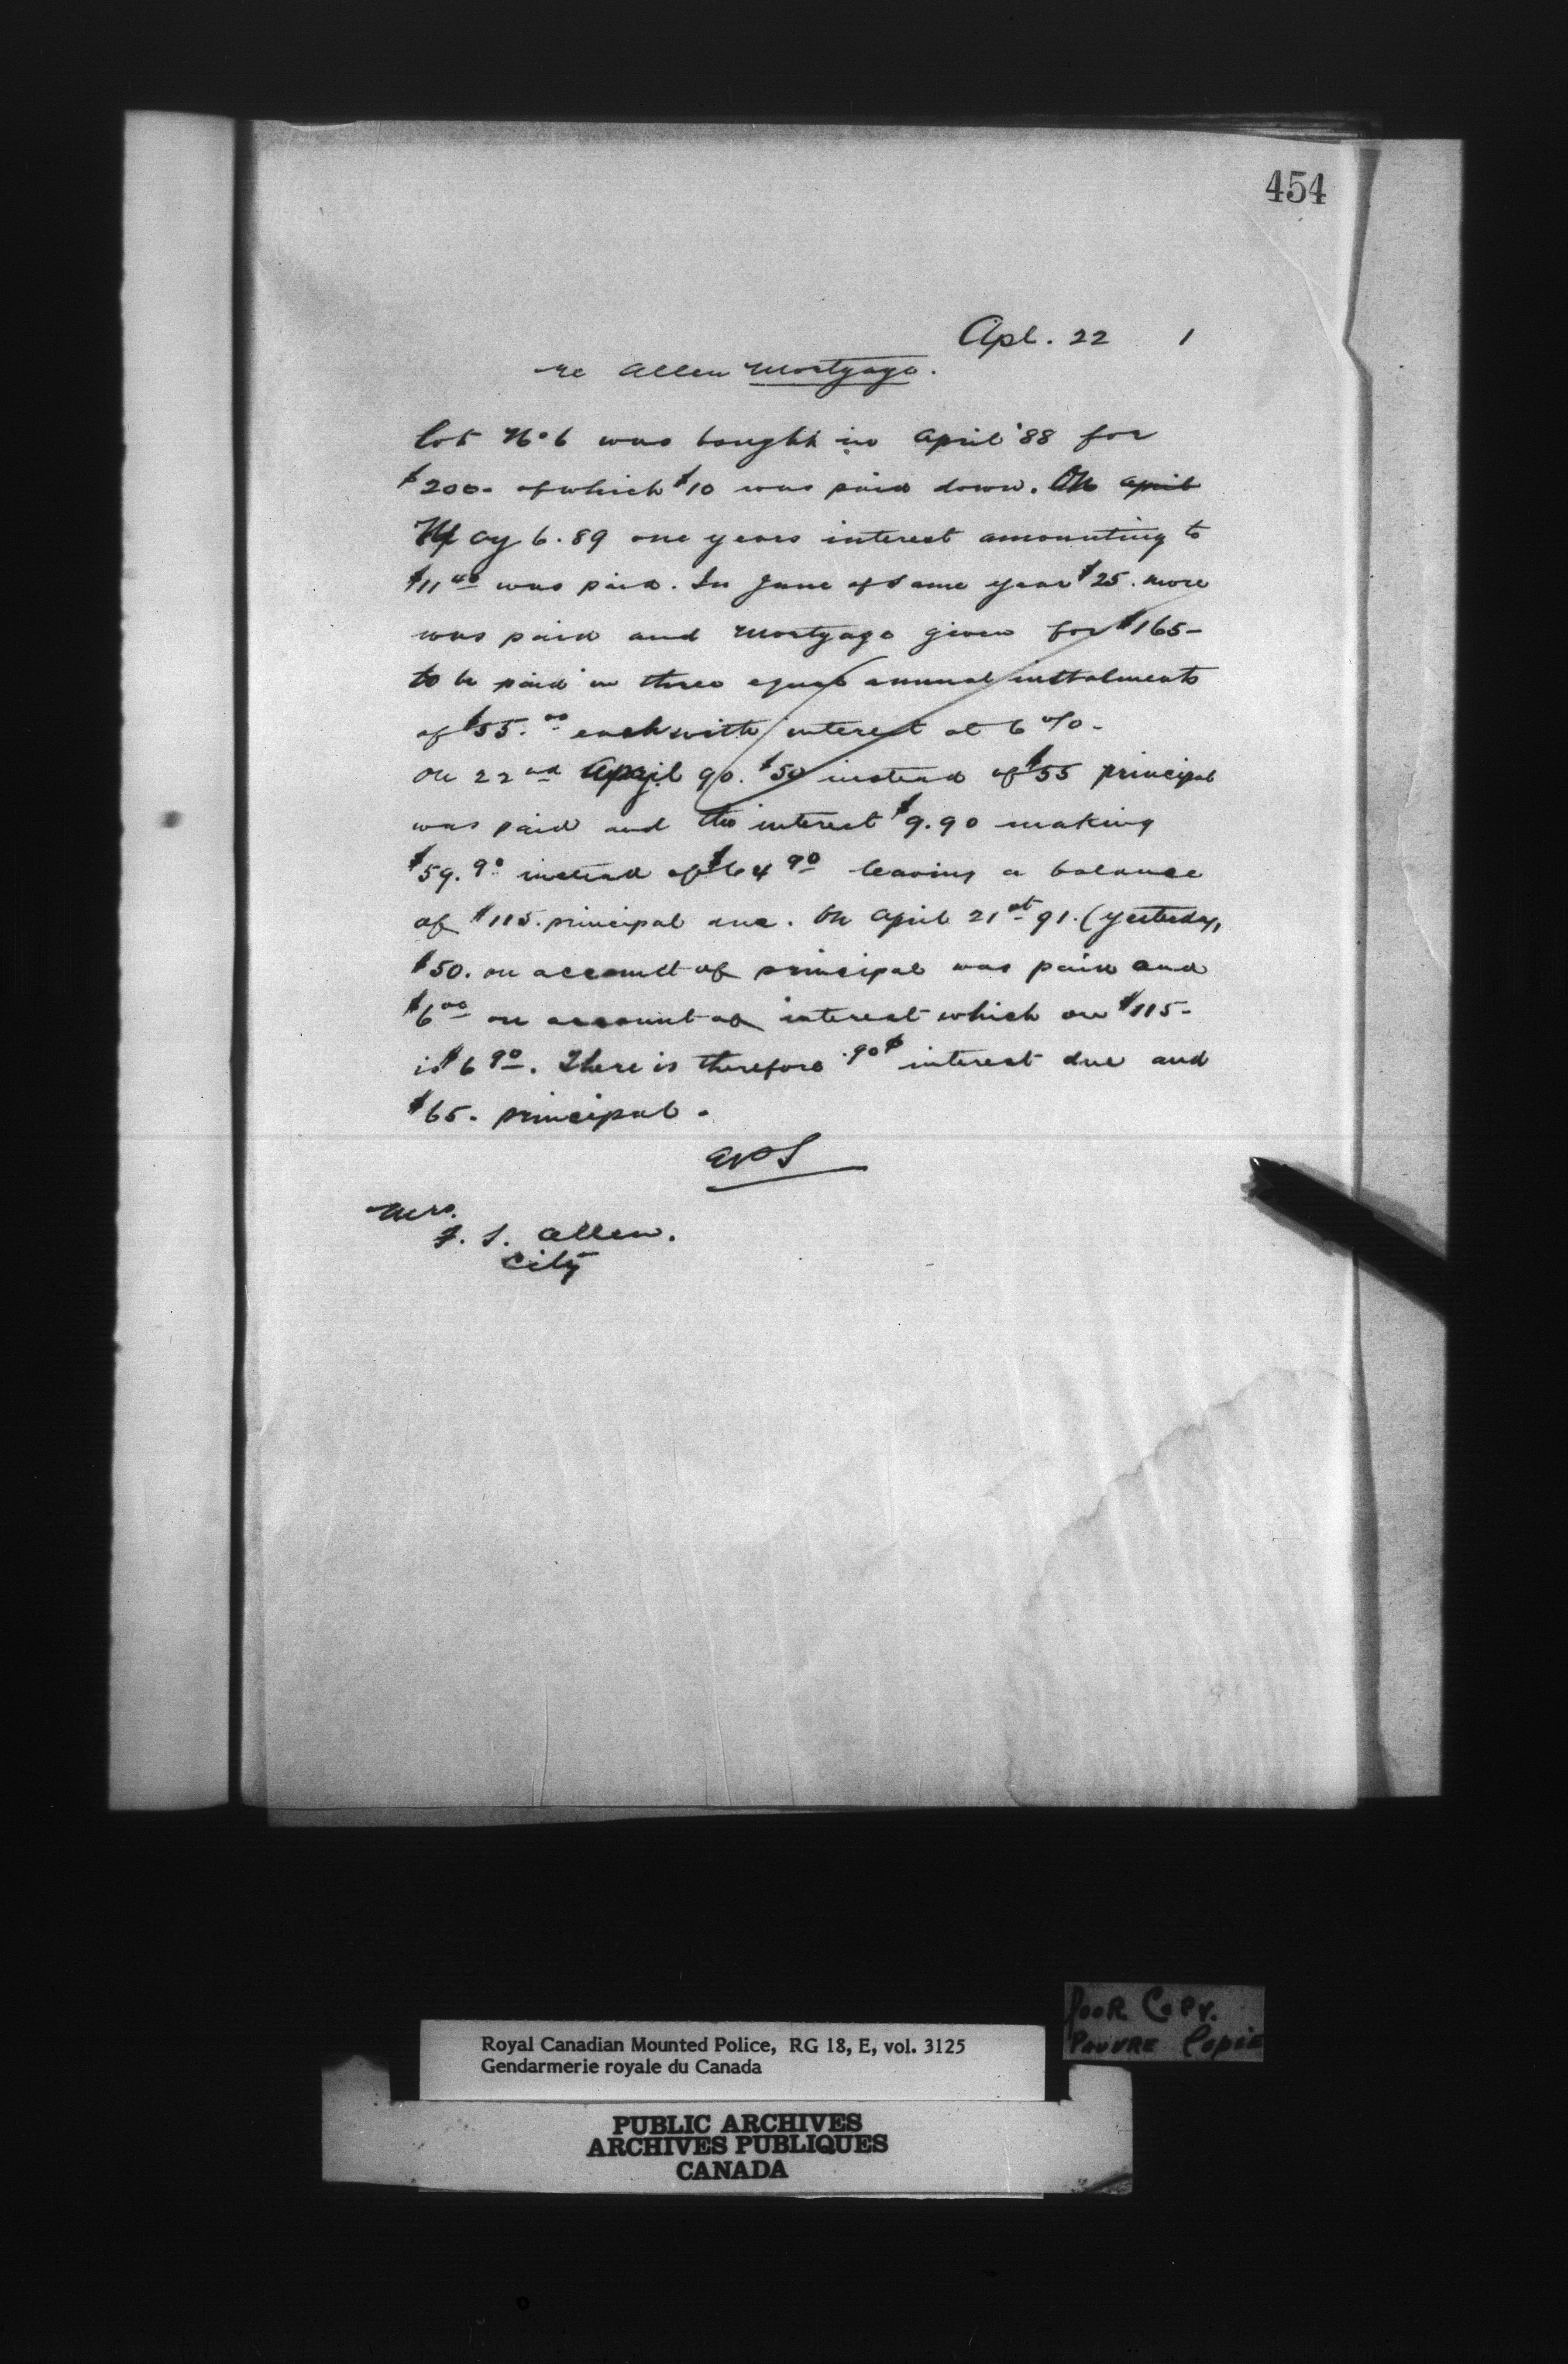 454
Apl. 22 1
re Allen Mortgage.
Lot No 6 was bought in April '88 for
$200- of which $10 was paid down. On April
May 6. 89 one years interest amounting to
$11 40 was paid. In June of same year $25. more
was paid and Mortgage given for $165-
to be paid in three equal annual instalments
of $55. 00 each with interest at 6 %-
On 22nd April 90. $50 instead of $55 principal
was paid and the interest $9.90 making
$59. 90 instead of $64 90 leaving a balance
of $115. principal due. On April 21st 91. (yesterday,
$50. on account of principal was paid and
$6 00 on account of interest which on $115-
is $6 90. There is therefore .90¢ interest due and
$65- principal.
Mrs.
F. S. Allen.
City
Poor Copy.
Pauvre Copie
Royal Canadian Mounted Police, RG 18, E, vol. 3125
Gendarmerie royale du Canada
PUBLIC ARCHIVES
ARCHIVES PUBLIQUES
CANADA